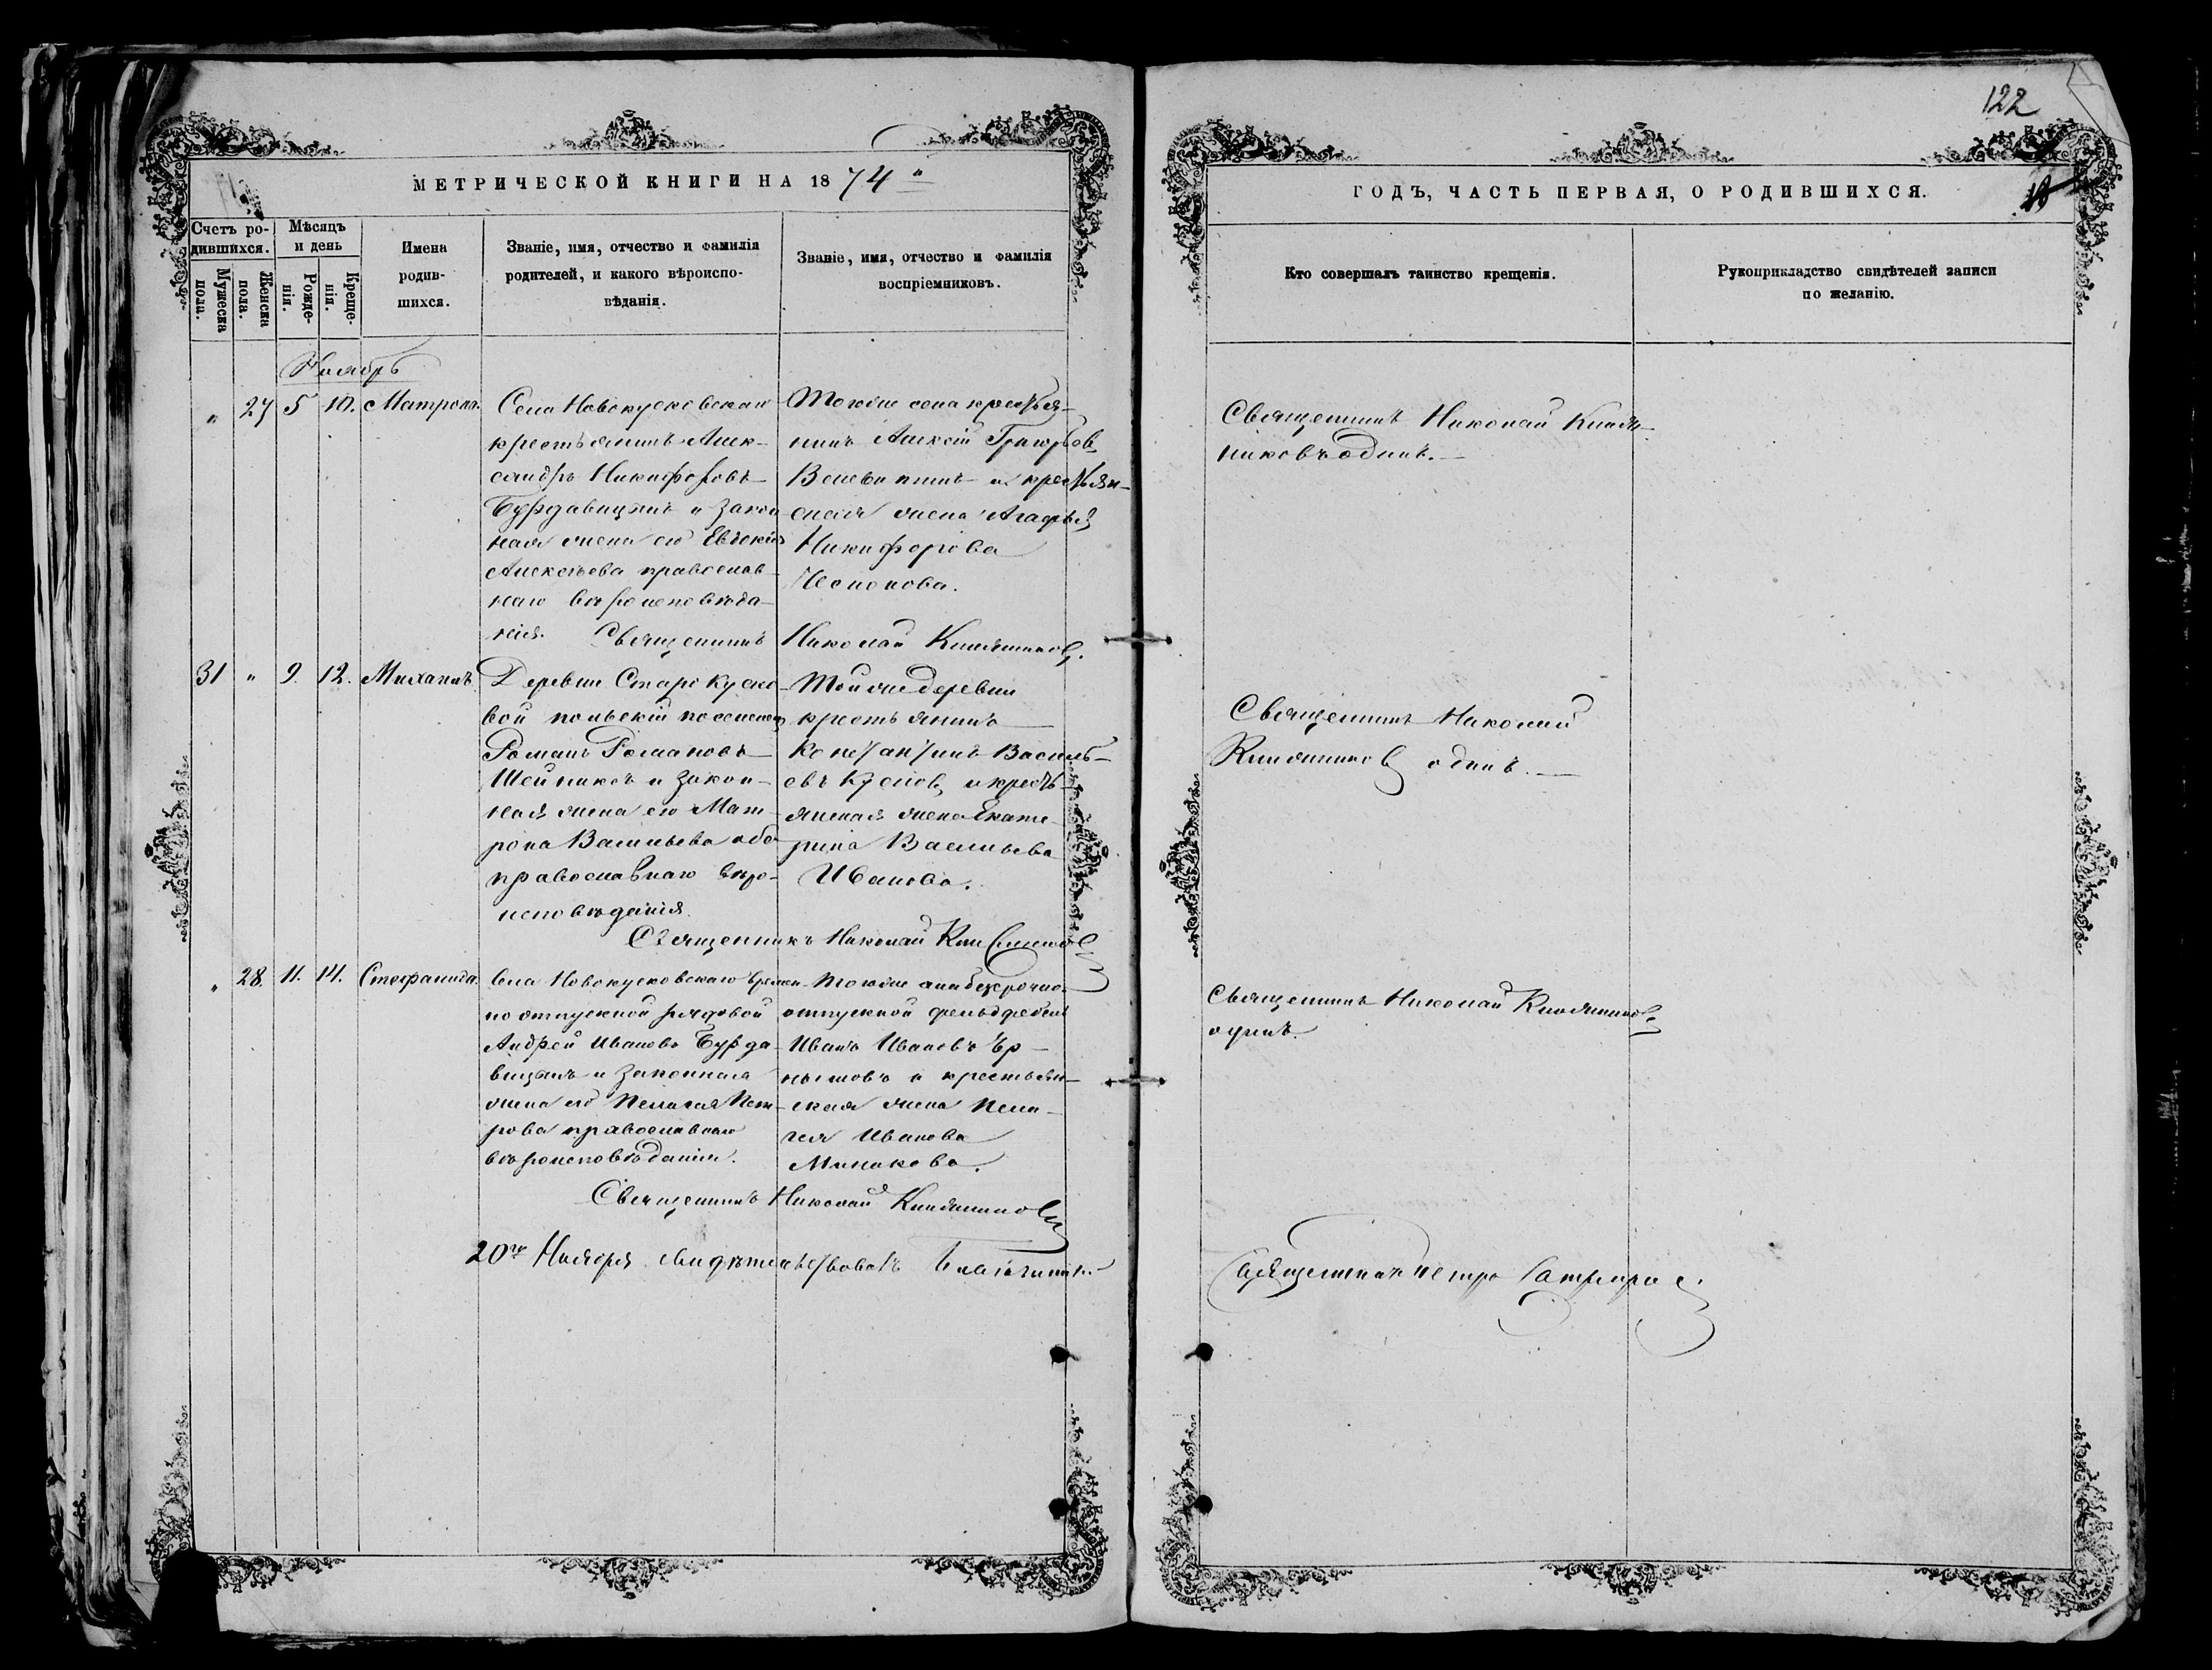 122
МЕТРИЧЕСКОЙ КНИГИ НА 1874
ГОДЪ, ЧАСТЬ ПЕРВАЯ, О РОДИВШИХСЯ.
Счетъ ро-
дившихся.
Мужеска
пола.
Женска
пола.
Мѣсяцъ
и день
Рожде-
нія.
Креще-
нія.
Имена
родив-
шихся.
Званіе, имя, отчество и фамилія
родителей, и какого вѣроиспо-
вѣданія.
Званіе, имя, отчество и фамилія
воспріемниковъ.
Кто совершалъ таинство крещенія.
Рукоприкладство свидѣтелей записи
по желанію.
Ноябрь
" 27 5 10. Матрона.
Села Новокусковскаго
крестьянинъ Алек-
сандръ Никифоровъ
Бурдавицынъ и закон
ная жена его Евгенія
Алексѣева православ-
наго вѣроисповѣда-
нія.
Тогоже села крестья-
нинъ Алексѣй Григорьев
и крестьян-
ская жена Агафья
Никифорова
Священникъ Николай
никовъ одинъ.
Священникъ Николай
31 " 9. 12. Михаилъ.
Деревни Старо Куско-
вой польскій поселенец
Романъ Романовъ
и закон-
ная жена его Мат-
рона Васильева оба
православнаго вѣро-
исповѣданія.
Той же деревни
крестьянинъ
Константинъ Василь-
евъ Кусков и кресть-
янская жена Екате-
рина Васильева
Иванова.
Священникъ Николай
одинъ.
Священникъ Николай
" 28. 11. 14. Стефанида.
Села Новокусковскаго времен-
но отпускной рядовой
Андрей Ивановъ Бурда-
вицынъ и законная
жена его Пелагея Пет-
рова православнаго
вѣроисповѣданія.
Тогоже села безсрочно
отпускной фельдфебель
Иванъ Ивановъ
и крестьян-
ская жена Пела-
гея Иванова
Минакова.
Священникъ Николай
одинъ.
Священникъ Николай
20го Ноября свидѣтельствовалъ Благочинный
Священникъ Петръ